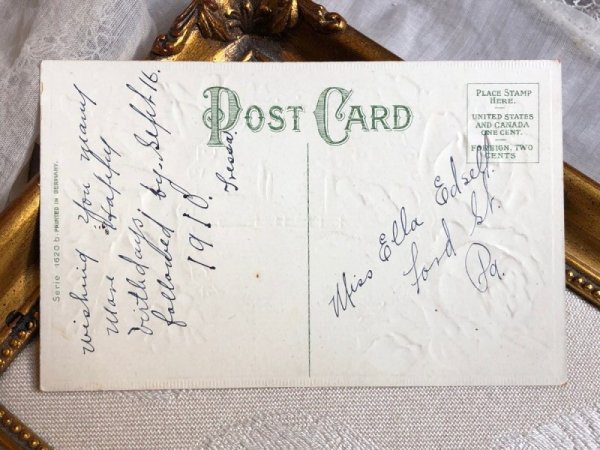 POST CARD
PLACE STAMP
HERE.
UNITED STATES
AND CANADA
ONE CENT.
FOREIGN, TWO
CENTS
Serie 1620 b. PRINTED IN GERMANY.
Wishing You many
More Happy
birthdays
followed by Sept 16.
1910
Miss Ella Edsel.
Ford St.
Pa.